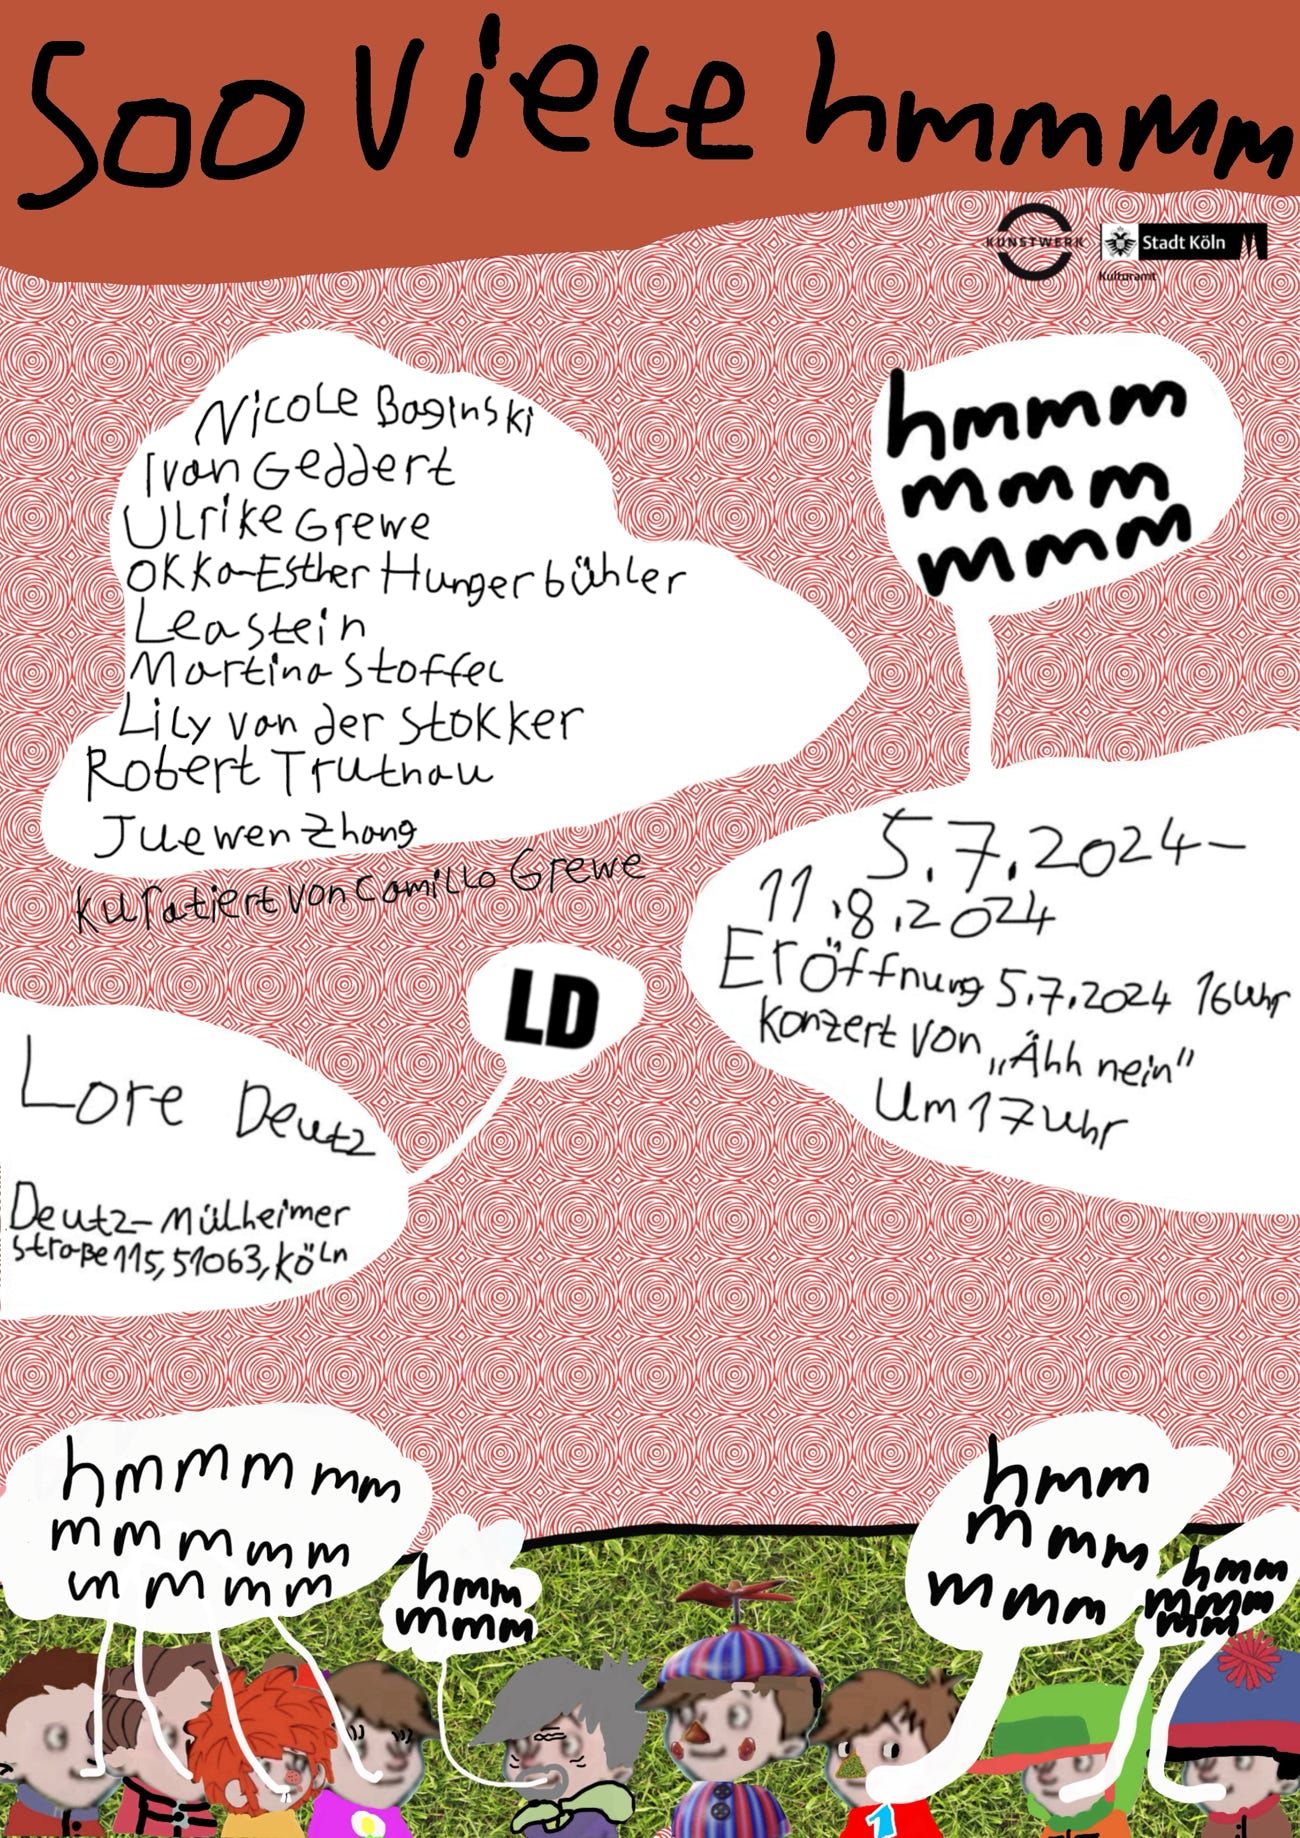 Soo viele hmmmm
KUNSTWERK
Stadt Köln
Kulturamt
Nicole Baginski
Ivan Geddert
Ulrike Grewe
Okka-Esther Hungerbühler
Lea Stein
Martina Stoffel
Lily van der Stokker
Robert Trutnau
Juewen Zhang
kuratiert von Camillo Grewe
hmmm
mmm
mmm
5.7.2024-
11.8.2024
Eröffnung 5.7.2024 16 Uhr
Konzert von „Ähh nein“
Um 17 Uhr
LD
Lore Deutz
Deutz-Mülheimer
straße 115, 51063, Köln
hmmmmm
mmmmm
mmmm
hmm
mmm
hmm
mmmm
mmmm
hmm
mmm
mm
1